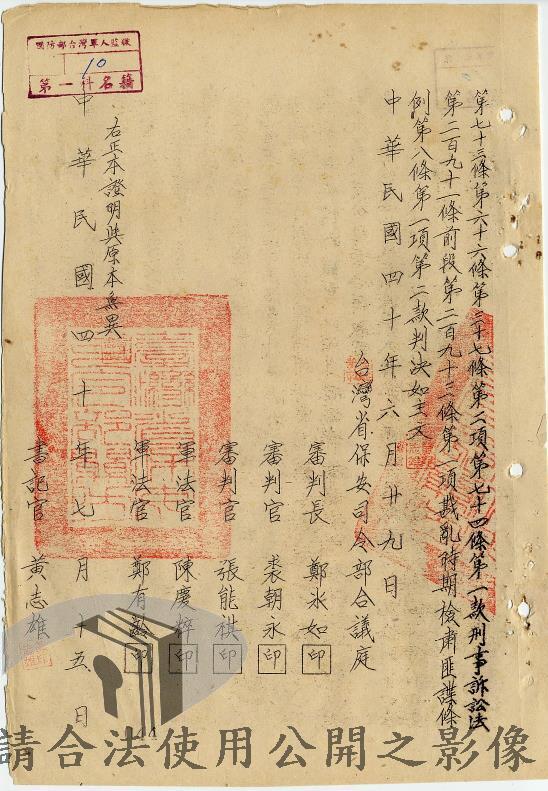 國防部台灣軍人監獄
10
第一科名籍
第七十三條第六十六條第三十七條第二項第七十四條第一款刑事訴訟法
第二百九十一條前段第二百九十三條第一項戡亂時期檢肅匪諜條
例第八條第一項第二款判決如主文
中華民國四十年六月廿九日
台灣省保安司令部合議庭
審判長 鄭永如 印
審判官 裘朝永 印
審判官 張能祺 印
軍法官 陳慶粹 印
軍法官 鄭有齡 印
右正本證明與原本無異
書記官 黃志雄
中華民國四十年七月十五日
請合法使用公開之影像